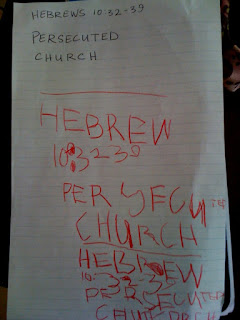 HEBREWS 10:32-39
PERSECUTED
CHURCH
HEBREW
10:3239
PERSECUTED
CHURCH
HEBREW
10:32-39
PERCECUTED
CHUECPRCH